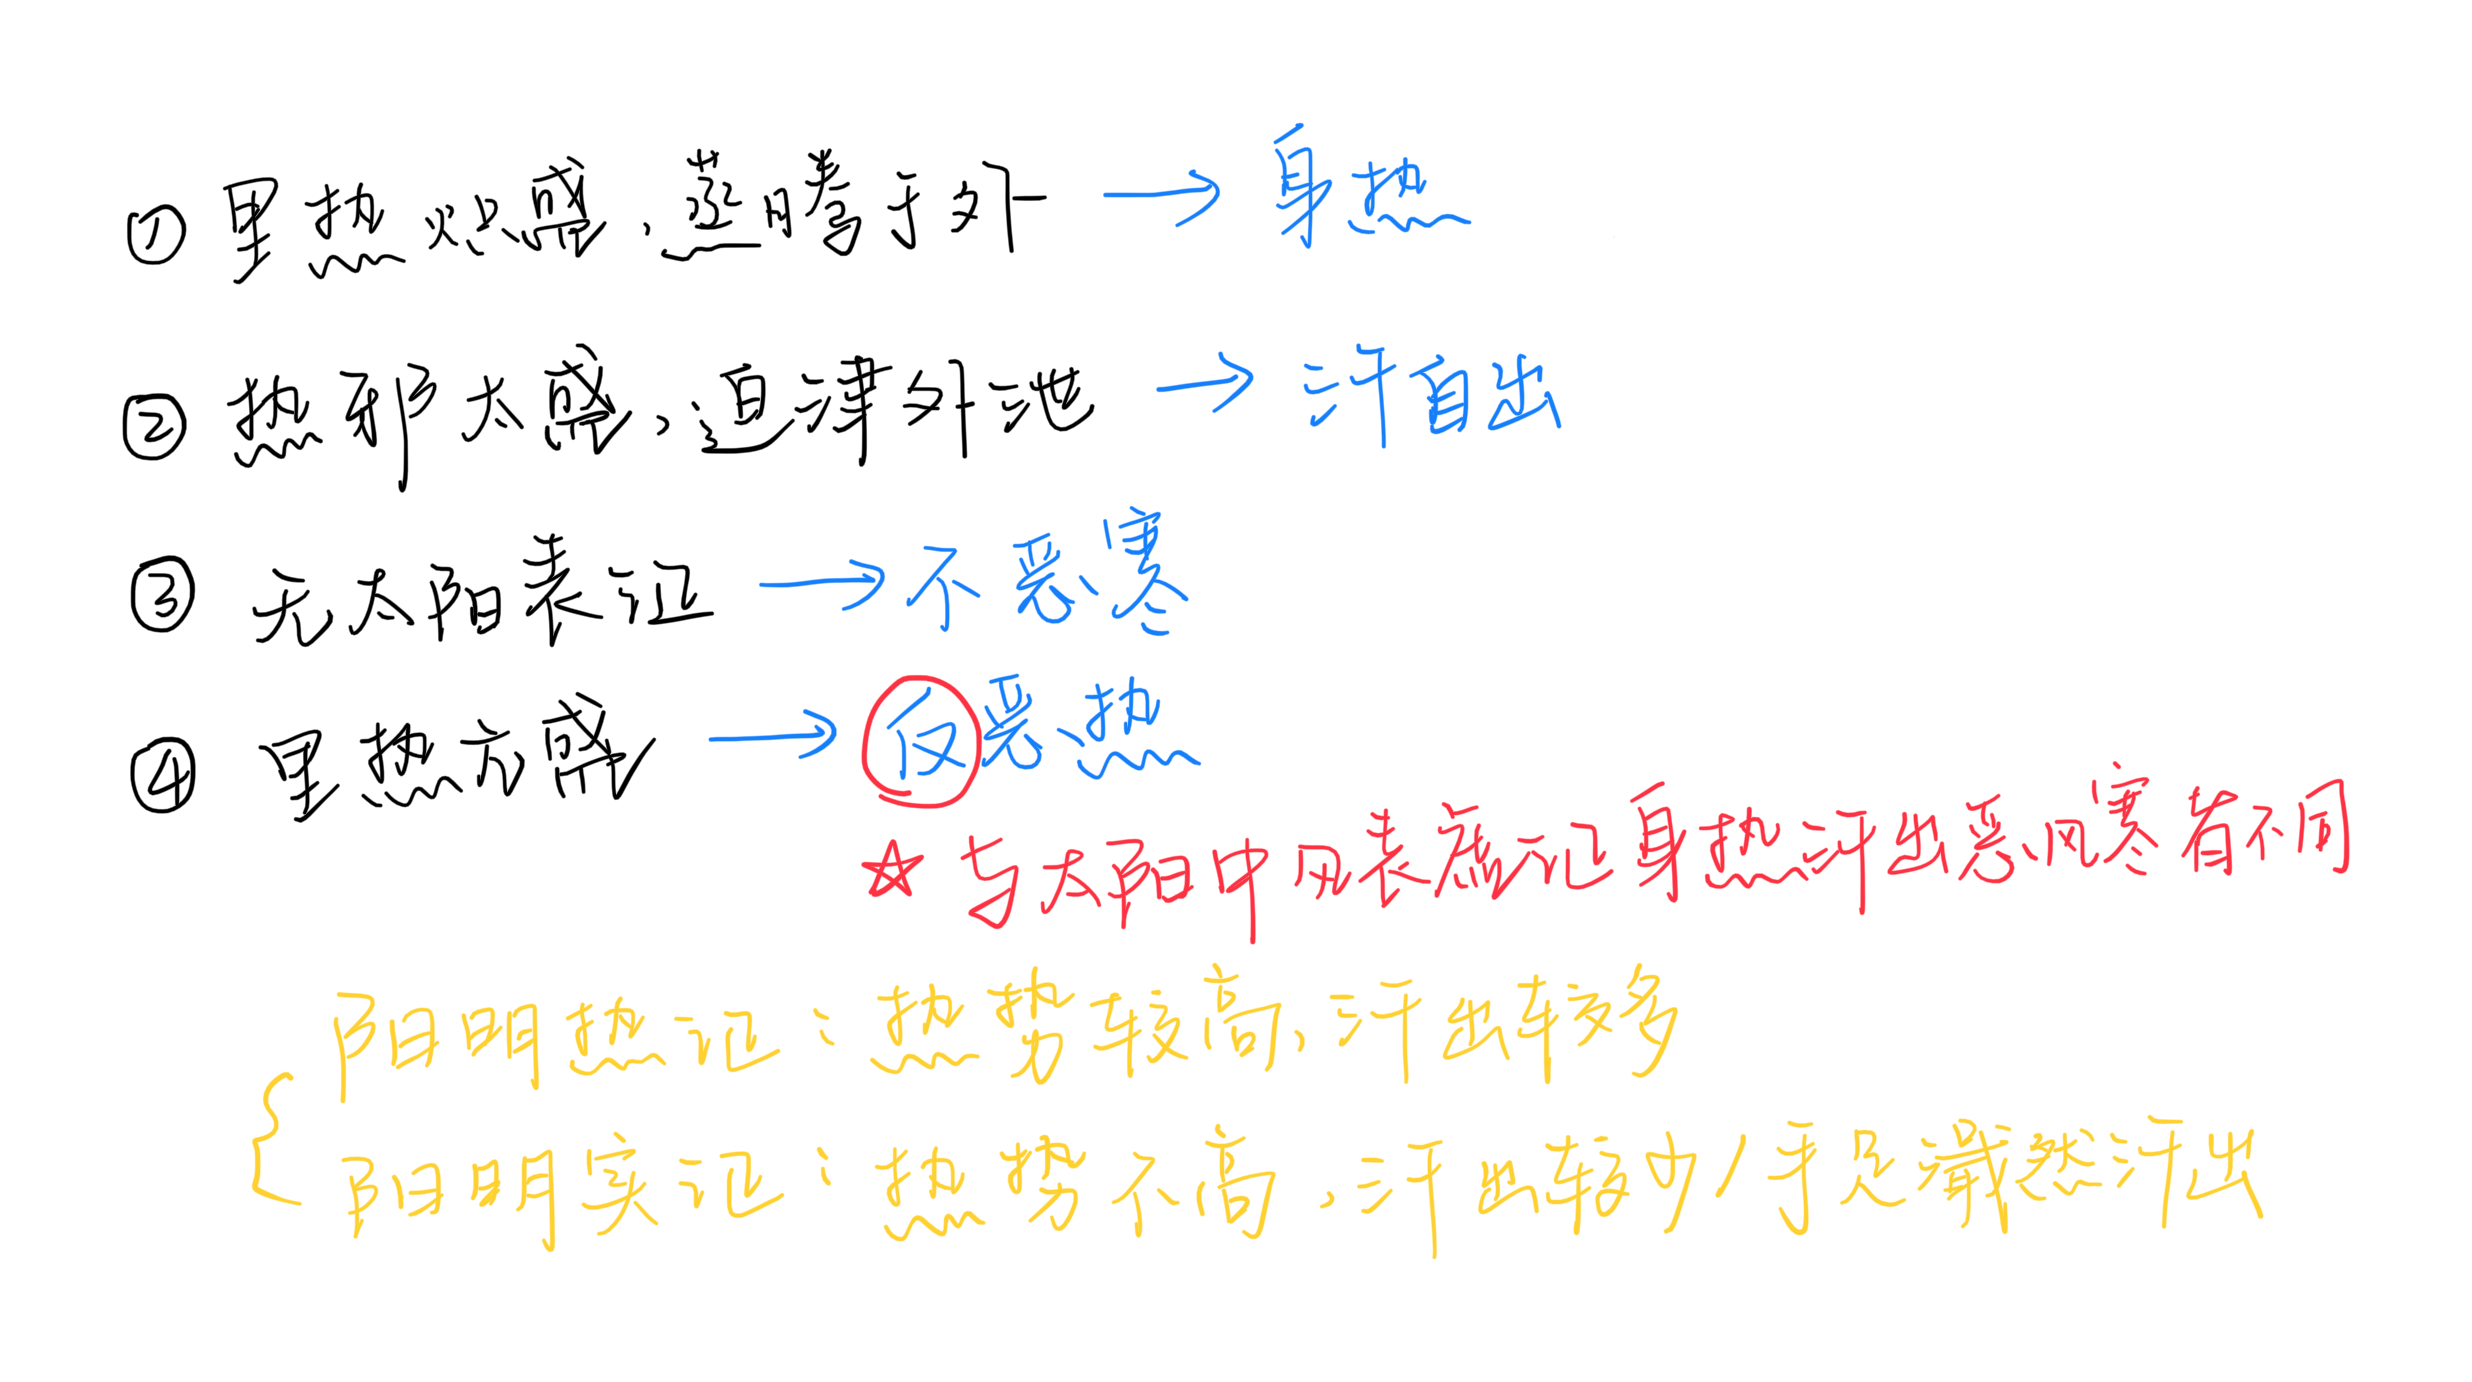 ① 里热炽盛，蒸腾于外 → 身热
② 热邪太盛，迫津外泄 → 汗自出
③ 无太阳表证 → 不恶寒
④ 里热亢盛 → 仅恶热
☆ 与太阳中风表虚证身热汗出恶风寒有不同
阳明热证：热势较高，汗出较多
阳明实证：热势不高，汗出较少/手足濈然汗出